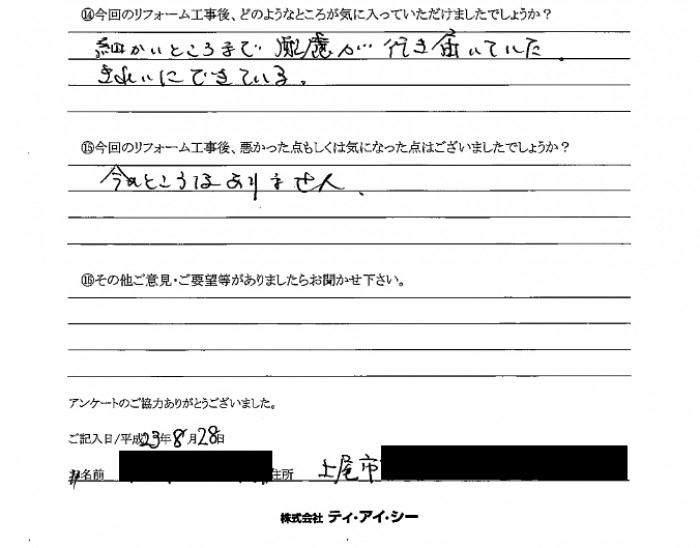 ⑭今回のリフォーム工事後、どのようなところが気に入っていただけましたでしょうか？
細かいところまで配慮が行き届いていた。
きれいにできている。
⑮今回のリフォーム工事後、悪かった点もしくは気になった点はございましたでしょうか？
今のところはありません、
⑯その他ご意見・ご要望等がありましたらお聞かせ下さい。
アンケートのご協力ありがとうございました。
ご記入日/平成23年8月28日
お名前 住所 上尾市
株式会社 ティ・アイ・シー